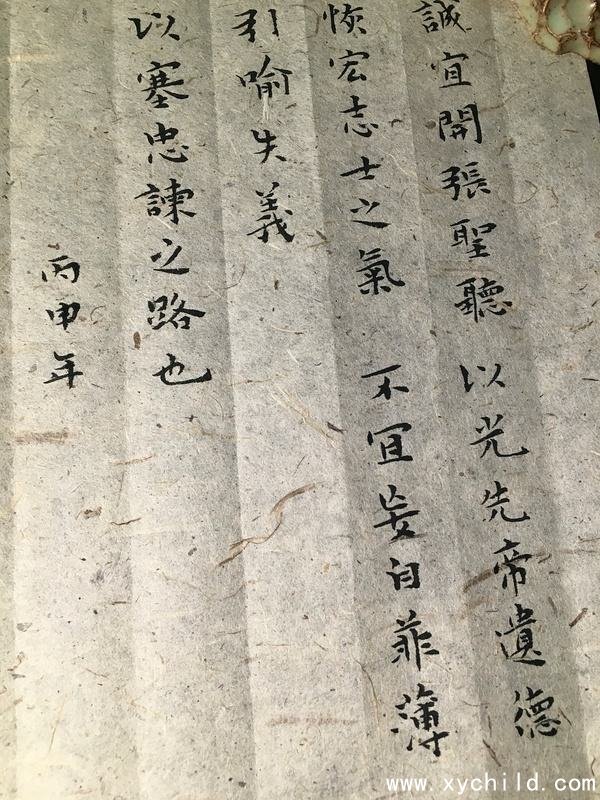 誠宜開張聖聽 以光先帝遺德
恢宏志士之氣 不宜妄自菲薄
引喻失義
以塞忠諫之路也
丙申年
www.xychild.com